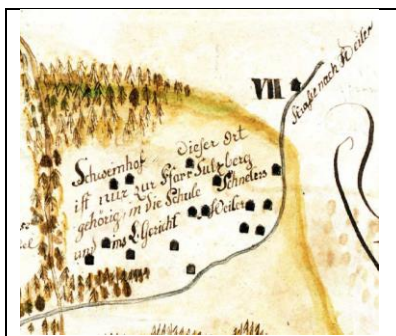 VII
Straße nach Weiler
Schweinhof dieser Ort
ist nur zur Pfarr Sulzberg
gehörig, in die Schule Schnelers
und ins L. Gericht Weiler